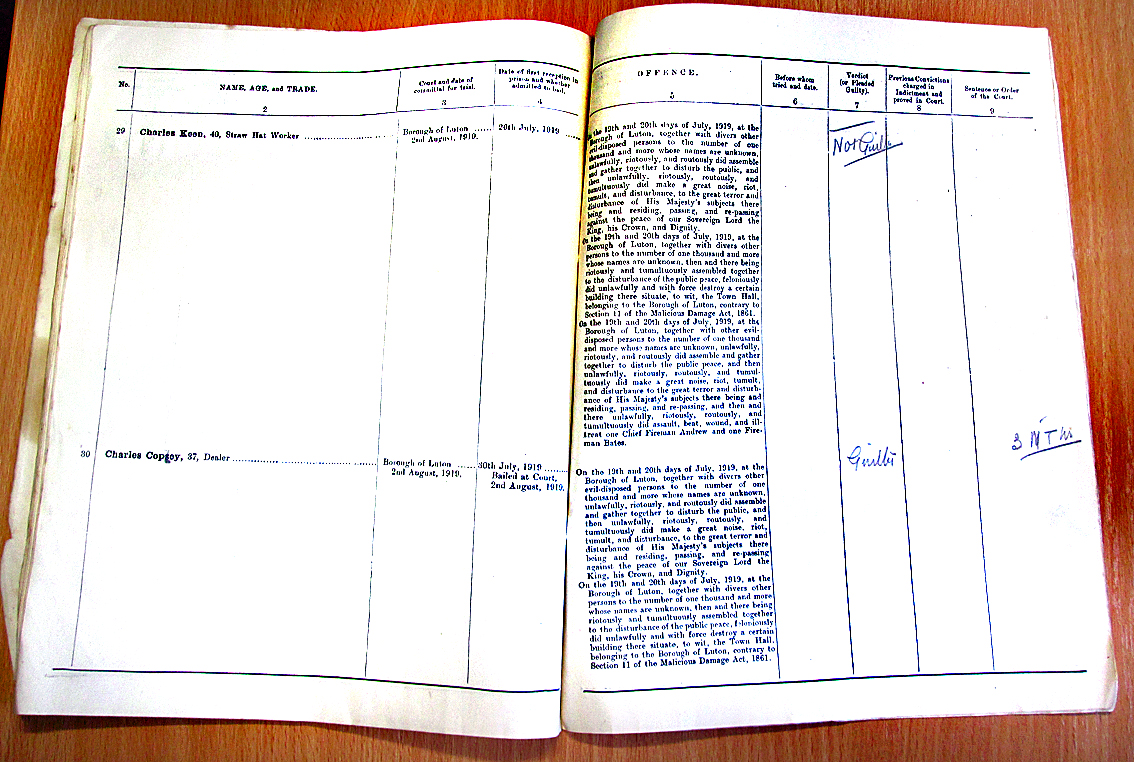 No.
NAME, AGE, and TRADE.
Court and date of
committal for trial.
Date of first reception in
prison and whether
admitted to bail.
OFFENCE.
Before whom
tried and date.
Verdict
(or Pleaded
Guilty).
Previous Convictions
charged in
Indictment and
proved in Court.
Sentence or Order
of the Court.
2
3
4
5
6
7
8
9
29 Charles Keen, 40, Straw Hat Worker
Borough of Luton
2nd August, 1919.
26th July, 1919
the 19th and 20th days of July, 1919, at the
Borough of Luton, together with divers other
evil-disposed persons to the number of one
thousand and more whose names are unknown,
unlawfully, riotously, and routously did assemble
and gather together to disturb the public, and
then unlawfully, riotously, routously, and
tumultuously did make a great noise, riot,
tumult, and disturbance, to the great terror and
disturbance of His Majesty's subjects there
being and residing, passing, and re-passing
against the peace of our Sovereign Lord the
King, his Crown, and Dignity.
On the 19th and 20th days of July, 1919, at the
Borough of Luton, together with divers other
persons to the number of one thousand and more
whose names are unknown, then and there being
riotously and tumultuously assembled together
to the disturbance of the public peace, feloniously
did unlawfully and with force destroy a certain
building there situate, to wit, the Town Hall,
belonging to the Borough of Luton, contrary to
Section 11 of the Malicious Damage Act, 1861.
On the 19th and 20th days of July, 1919, at the
Borough of Luton, together with other evil-
disposed persons to the number of one thousand
and more whose names are unknown, unlawfully,
riotously, and routously did assemble and gather
together to disturb the public peace, and then
unlawfully, riotously, routously, and tumul-
tuously did make a great noise, riot, tumult,
and disturbance to the great terror and disturb-
ance of His Majesty's subjects there being and
residing, passing, and re-passing, and then and
there unlawfully, riotously, routously, and
tumultuously did assault, beat, wound, and ill-
treat one Chief Fireman Andrew and one Fire-
man Bates.
Not Guilty
30 Charles Coppoy, 37, Dealer
Borough of Luton
2nd August, 1919.
30th July, 1919
Bailed at Court,
2nd August, 1919.
On the 19th and 20th days of July, 1919, at the
Borough of Luton, together with divers other
evil-disposed persons to the number of one
thousand and more whose names are unknown,
unlawfully, riotously, and routously did assemble
and gather together to disturb the public, and
then unlawfully, riotously, routously, and
tumultuously did make a great noise, riot,
tumult, and disturbance, to the great terror and
disturbance of His Majesty's subjects there
being and residing, passing, and re-passing
against the peace of our Sovereign Lord the
King, his Crown, and Dignity.
On the 19th and 20th days of July, 1919, at the
Borough of Luton, together with divers other
persons to the number of one thousand and more
whose names are unknown, then and there being
riotously and tumultuously assembled together
to the disturbance of the public peace, feloniously
did unlawfully and with force destroy a certain
building there situate, to wit, the Town Hall,
belonging to the Borough of Luton, contrary to
Section 11 of the Malicious Damage Act, 1861.
Guilty
3 MTHS